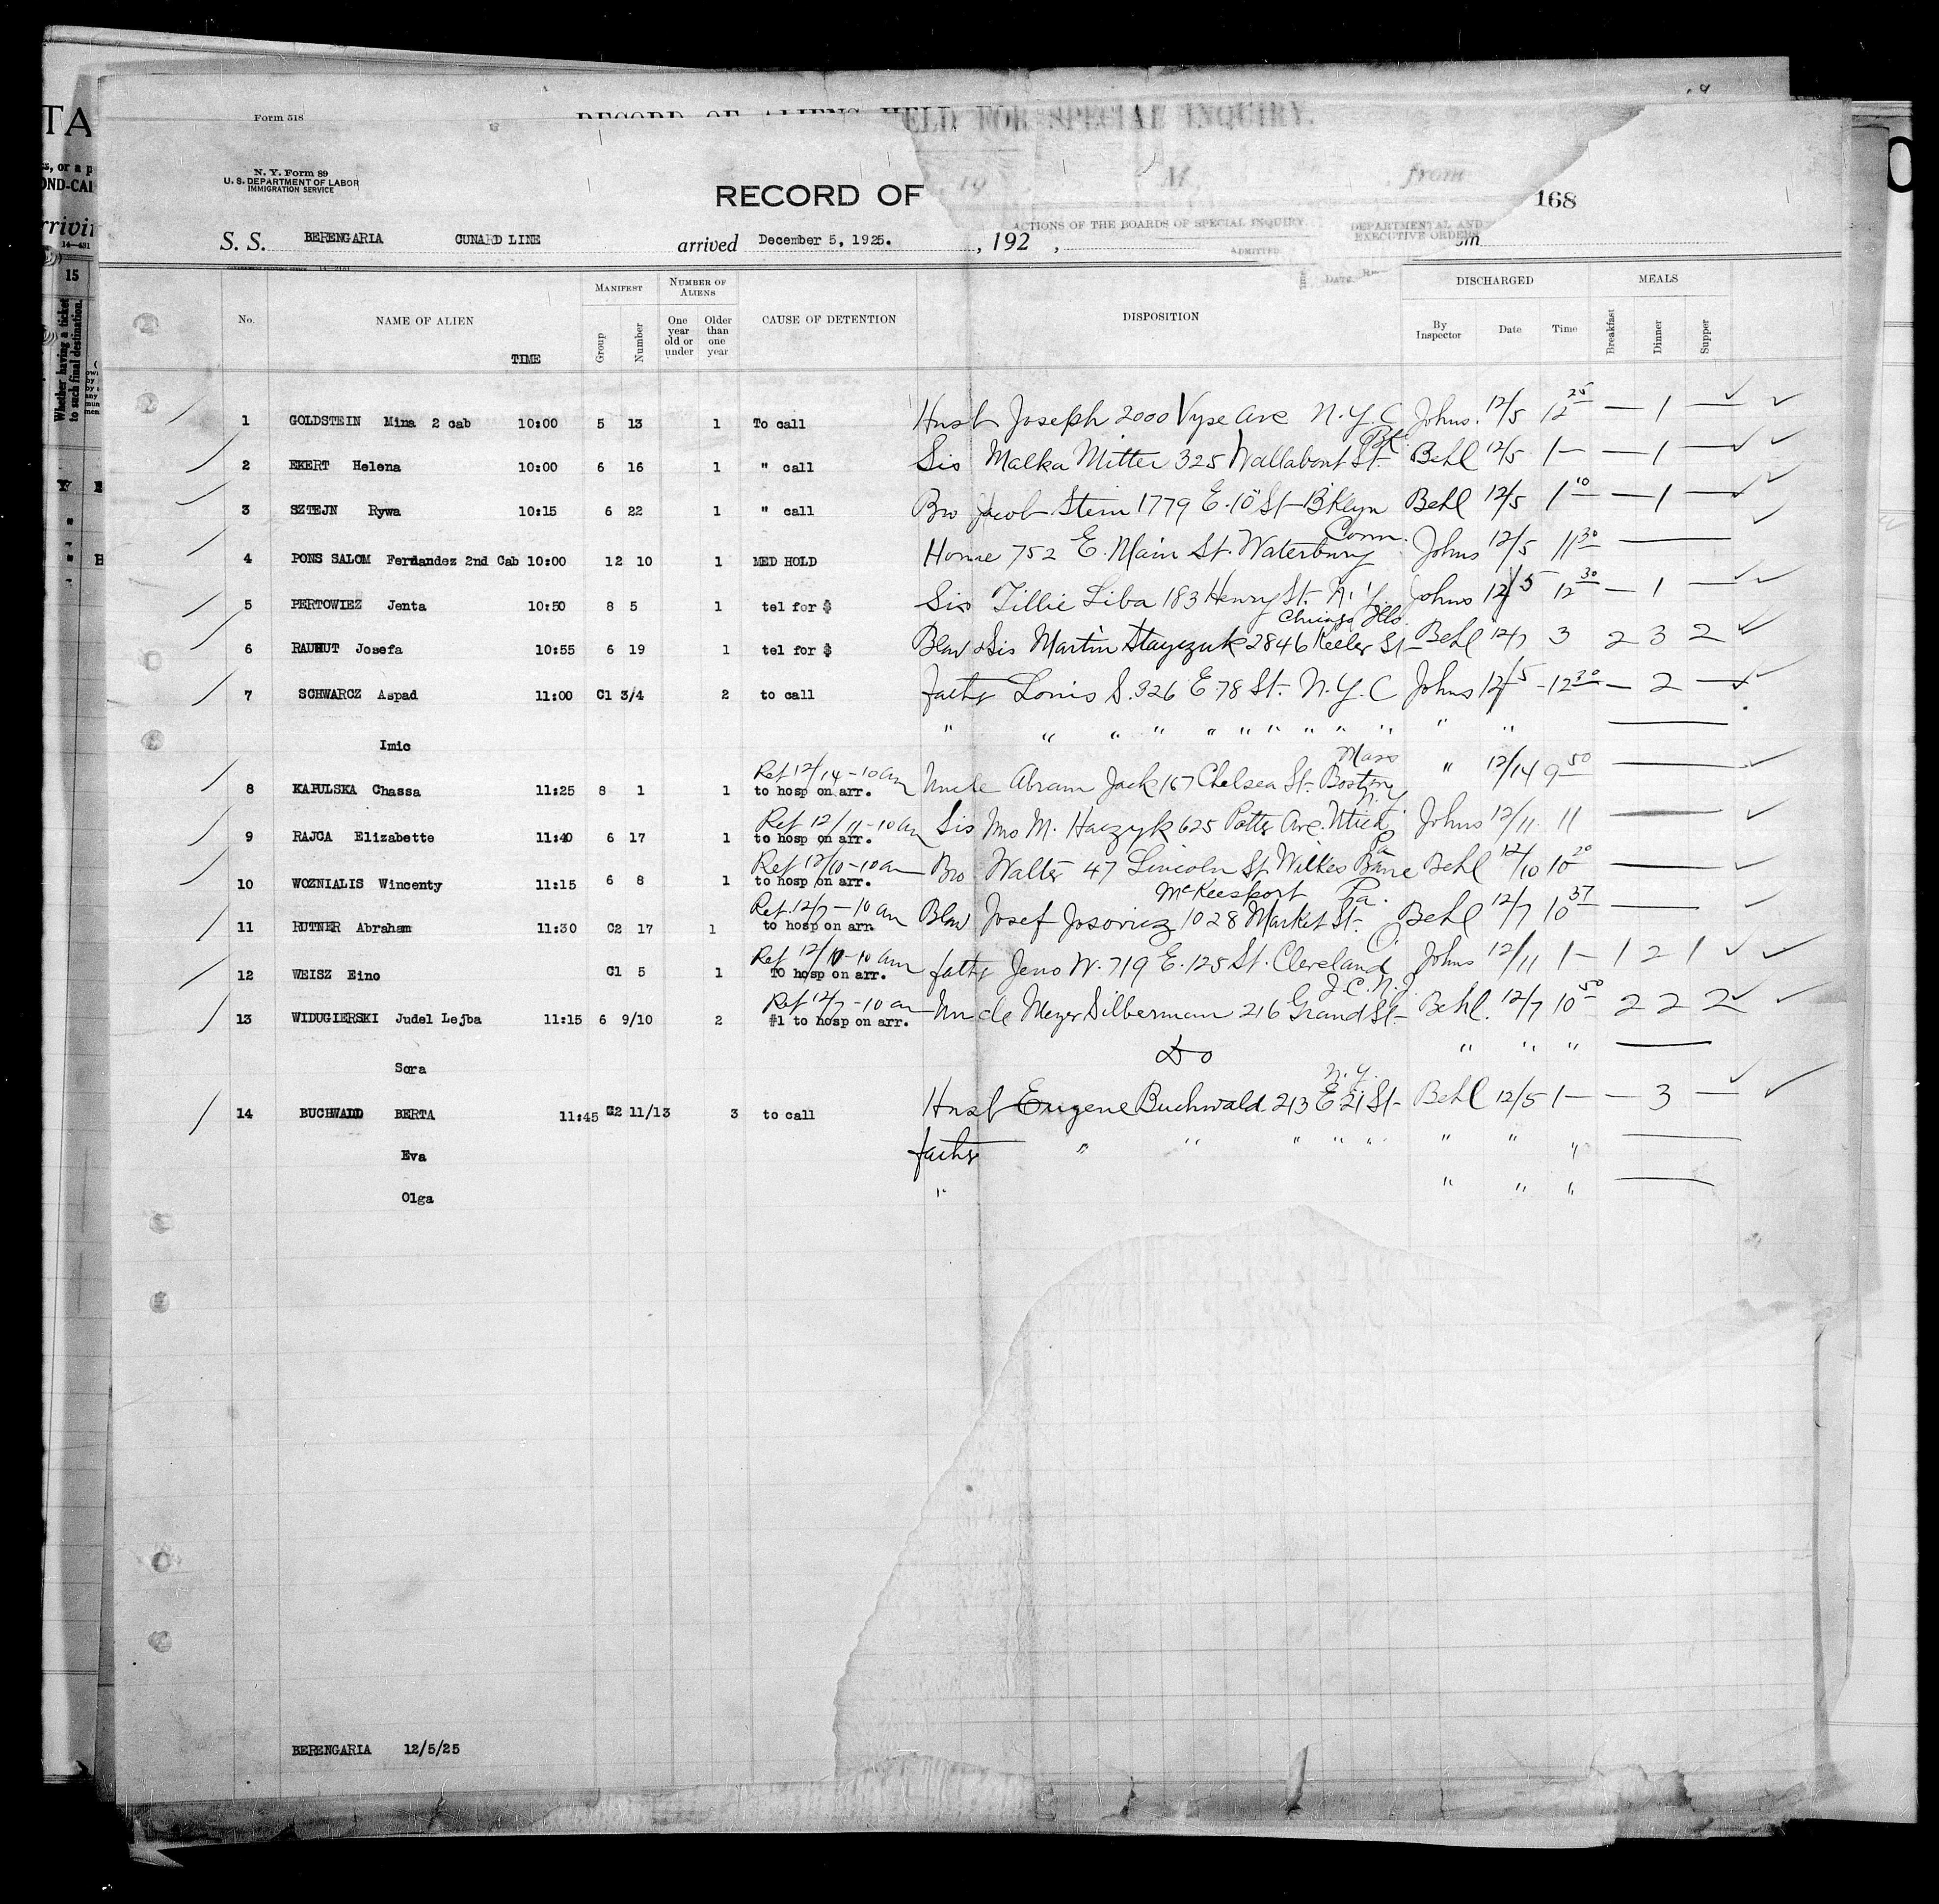 TA
s, or a p
OND-CAI
rrivin
14-431
15
Whether having a ticket to such final destination.
Form 518
RECORD OF ALIENS HELD FOR SPECIAL INQUIRY.
N. Y. Form 89
U. S. DEPARTMENT OF LABOR
IMMIGRATION SERVICE
RECORD OF
, 19 M. , from
168
ACTIONS OF THE BOARDS OF SPECIAL INQUIRY.
DEPARTMENTAL AND EXECUTIVE ORDERS
ADMITTED.
S. S. BERENGARIA CUNARD LINE arrived December 5, 1925. , 192 , om
DATE.
No. NAME OF ALIEN TIME MANIFEST Group Number NUMBER OF ALIENS One year old or under Older than one year CAUSE OF DETENTION DISPOSITION DISCHARGED By Inspector Date Time MEALS Breakfast Dinner Supper
1 GOLDSTEIN Mina 2 cab 10:00 5 13 1 To call Husb Joseph 2000 Vyse Ave N.Y.C Johns. 12/5 12 25 — 1 —
2 EKERT Helena 10:00 6 16 1 " call Sis Malka Mitter 325 Wallabout St. Bk. Behl 12/5 1— — 1 —
3 SZTEJN Rywa 10:15 6 22 1 " call Bro Jacob Stein 1779 E. 10 St B'klyn Behl 12/5 1 10 — 1 —
4 PONS SALOM Fernandez 2nd Cab 10:00 12 10 1 MED HOLD Home 752 E. Main St. Waterbury Conn. Johns 12/5 11 30 —
5 PERTOWIEZ Jenta 10:50 8 5 1 tel for $ Sis Tillie Liba 183 Henry St. N.Y. Johns 12/5 12 30 — 1 —
6 RAUHUT Josefa 10:55 6 19 1 tel for $ Blaw & Sis Martin Stayczuk 2846 Keeler St Chicago Ills. Behl 12/7 3 2 3 2
7 SCHWARCZ Aspad 11:00 C1 3/4 2 to call father Louis S. 326 E. 78 St. N.Y.C Johns 12/5 - 12 30 — 2 —
Imic " " " " " " " " " " " " " —
8 KAPULSKA Chassa 11:25 8 1 1 Ret 12/14 - 10 am to hosp on arr. Uncle Abram Jack 167 Chelsea St. Boston Mass " 12/14 9 50 —
9 RAJCA Elizabette 11:40 6 17 1 Ret 12/11 - 10 am to hosp on arr. Sis Mrs M. Haczyk 625 Potter Ave. Utica N.Y. Johns 12/11 11 —
10 WOZNIALIS Wincenty 11:15 6 8 1 Ret 12/10 - 10 am to hosp on arr. Bro Walter 47 Lincoln St. Wilkes Barre Pa Behl 12/10 10 20 —
11 RUTNER Abraham 11:30 C2 17 1 Ret. 12/7 - 10 am to hosp on arr. Blaw Josef Josovicz 1028 Market St. McKeesport Pa. Behl 12/7 10 37 —
12 WEISZ Eino C1 5 1 Ret 12/10 - 10 am TO hosp on arr. father Jeno W. 719 E. 125 St. Cleveland O. Johns 12/11 1— 1 2 1
13 WIDUGIERSKI Judel Lejba 11:15 6 9/10 2 Ret 12/7 - 10 am #1 to hosp on arr. Uncle Meyer Silberman 216 Grand St- J.C.N.J. Behl. 12/7 10 50 2 2 2
Sora Do " " " —
14 BUCHWALD BERTA 11:45 C2 11/13 3 to call Husb Eugene Buchwald 213 E 21 St- N.Y. Behl 12/5 1— — 3 —
Eva father " " " " " " " " —
Olga " " " " —
BERENGARIA 12/5/25